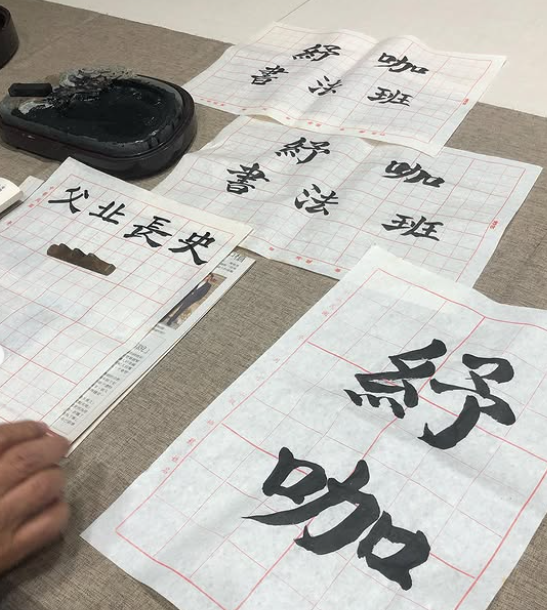 紓咖
書法班
紓咖
書法班
父北長史
紓咖